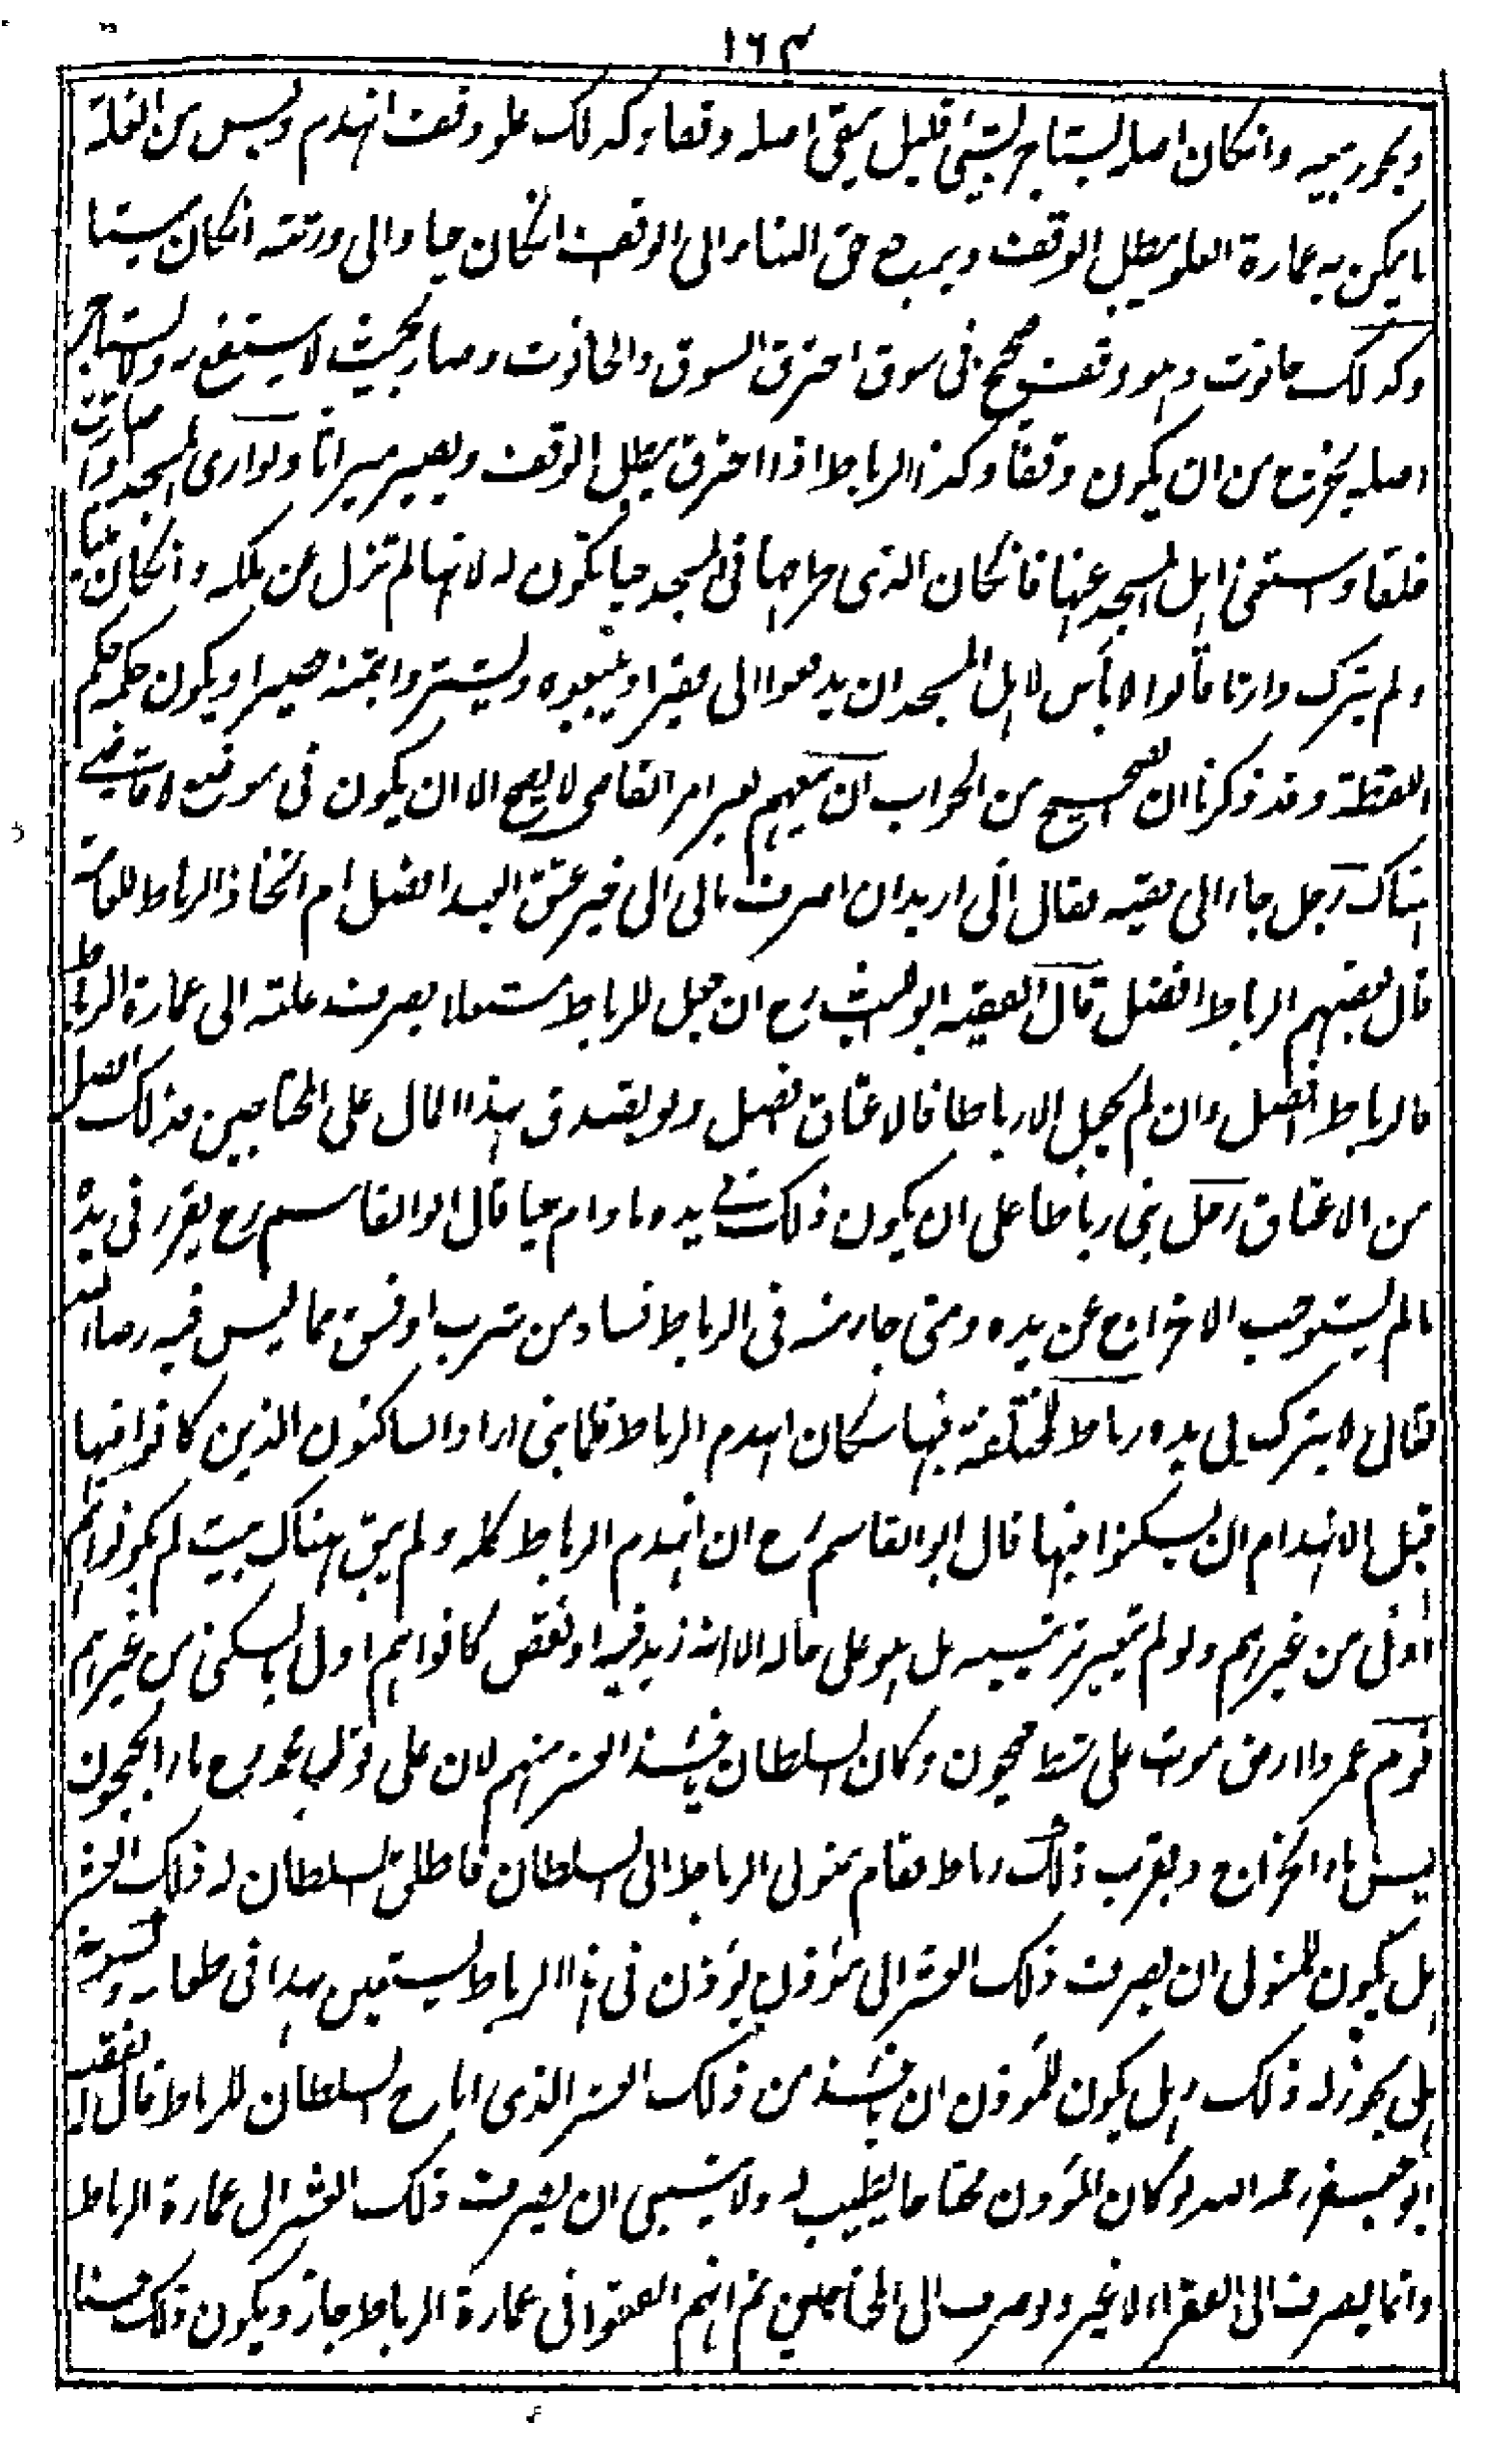 ١٦٤
ويجوز بيعه وانكان اصله يستاجر بشيئ قليل يبقى اصله وقفا وكذلك علو وقف انهدم وليس من الغلة
ما يمكن به عمارة العلو يبطل الوقف ويرجع حق البناء الى الوقف انكان حيا والى ورثته انكان ميتا
وكذلك حانوت هو وقف صحيح فى سوق احترق السوق والحانوت وصار بحيث لا ينتفع به ولا يستاجر
اصله يخرج من ان يكون وقفا وكذا الرباط اذا احترق يبطل الوقف ويصير ميراثا ولوارى المسجد اذا صارت
خلقا واستغنى اهل المسجد عنها فانكان الذى طرحها فى المسجد حيا يكون له لانها لم تزل عن ملكه وانكان ميتا
ولم يترك وارثا قالوا لا بأس لاهل المسجد ان يدفعوا الى فقير او يبيعوه ويشتروا بثمنه حصيرا ويكون حكمه حكم
اللقطة وقد ذكرنا ان الصحيح من الجواب ان بيعهم بغير امر القاضى لا يصح الا ان يكون فى موضع لا قاضى
هناك رجل جاء الى فقيه فقال انى اريد ان اصرف مالى الى خير عتق العبد افضل ام اتخاذ الرباط للعامة
قال بعضهم الرباط افضل قال الفقيه ابو الليث رح ان جعل للرباط مستغلا يصرف غلته الى عمارة الرباط
فالرباط افضل وان لم يجعل الا رباطا فالاعتاق افضل ولو تصدق بهذا المال على المحتاجين فذلك افضل
من الاعتاق رجل بنى رباطا على ان يكون ذلك فى يده ما دام حيا قال ابو القاسم رح يقرر فى يده
ما لم يستوجب الاخراج عن يده ومتى جاء منه فى الرباط فساد من شرب او فسق مما ليس فيه رضا الله
تعالى لا يترك فى يده رباط للمختلفة فيها سكان انهدم الرباط فلما بنى اراد الساكنون الذين كانوا فيها
قبل الانهدام ان يسكنوا فيها قال ابو القاسم رح ان انهدم الرباط كله ولم يبق هناك بيت لم يكونوا هم
اولى من غيرهم ولو لم تغير ترتيبه بل هو على حاله الا انه زيد فيه او نقص كانوا هم اولى بالسكنى من غيرهم
قوم عمروا ارض موات على شط جيحون وكان السلطان ياخذ العشر منهم لان على قول محمد رح ماء الجيحون
ليس ماء الخراج وبقرب ذلك رباط فقام متولى الرباط الى السلطان فاطلق السلطان له ذلك العشر
هل يكون للمتولى ان يصرف ذلك العشر الى مؤذن يؤذن فى هذا الرباط يستعين بهذا فى طعامه وكسوته
هل يجوز له ذلك وهل يكون للمؤذن ان ياخذ من ذلك العشر الذى اباح السلطان للرباط قال الفقيه
ابو جعفر رحمه الله لو كان المؤذن محتاجا يطيب له ولا ينبغى ان يصرف ذلك العشر الى عمارة الرباط
وانما يصرف الى الفقراء لا غير ولو صرف الى المحتاجين ثم انهم انفقوا فى عمارة الرباط جاز ويكون ذلك حسنا